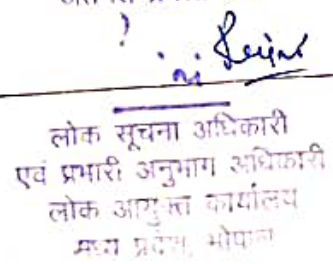 लोक सूचना अधिकारी
एवं प्रभारी अनुभाग अधिकारी
लोक आयुक्त कार्यालय
मध्य प्रदेश, भोपाल